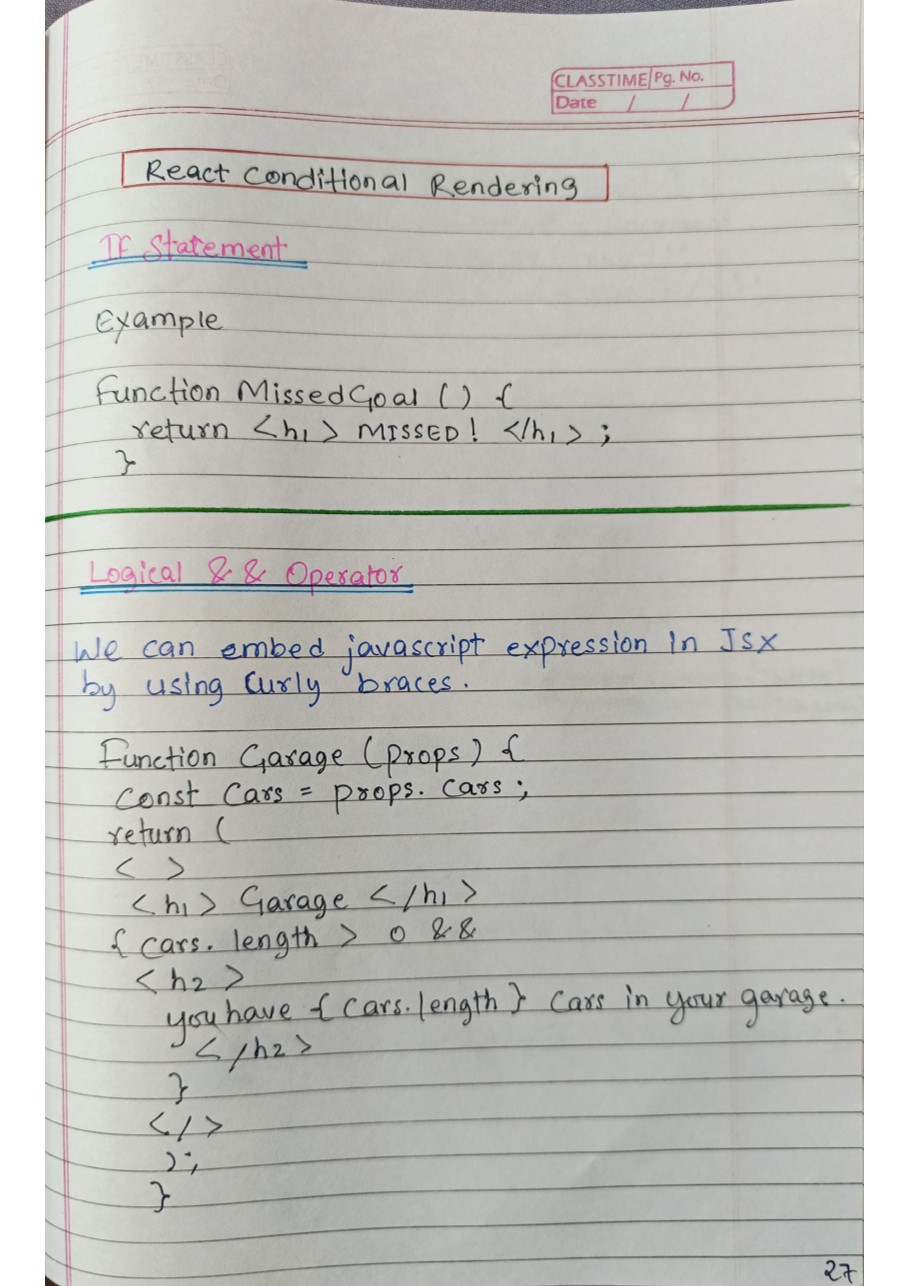 CLASSTIME Pg. No.
Date / /
React Conditional Rendering
If Statement
Example
function MissedGoal () {
return <h1> MISSED! </h1> ;
}
Logical && Operator
We can embed javascript expression in Jsx
by using Curly braces.
Function Garage (props) {
Const Cars = props. Cars ;
return (
< >
<h1> Garage </h1>
{ cars. length > 0 &&
<h2>
you have { Cars.length } Cars in your garage.
</h2>
}
</>
);
}
27